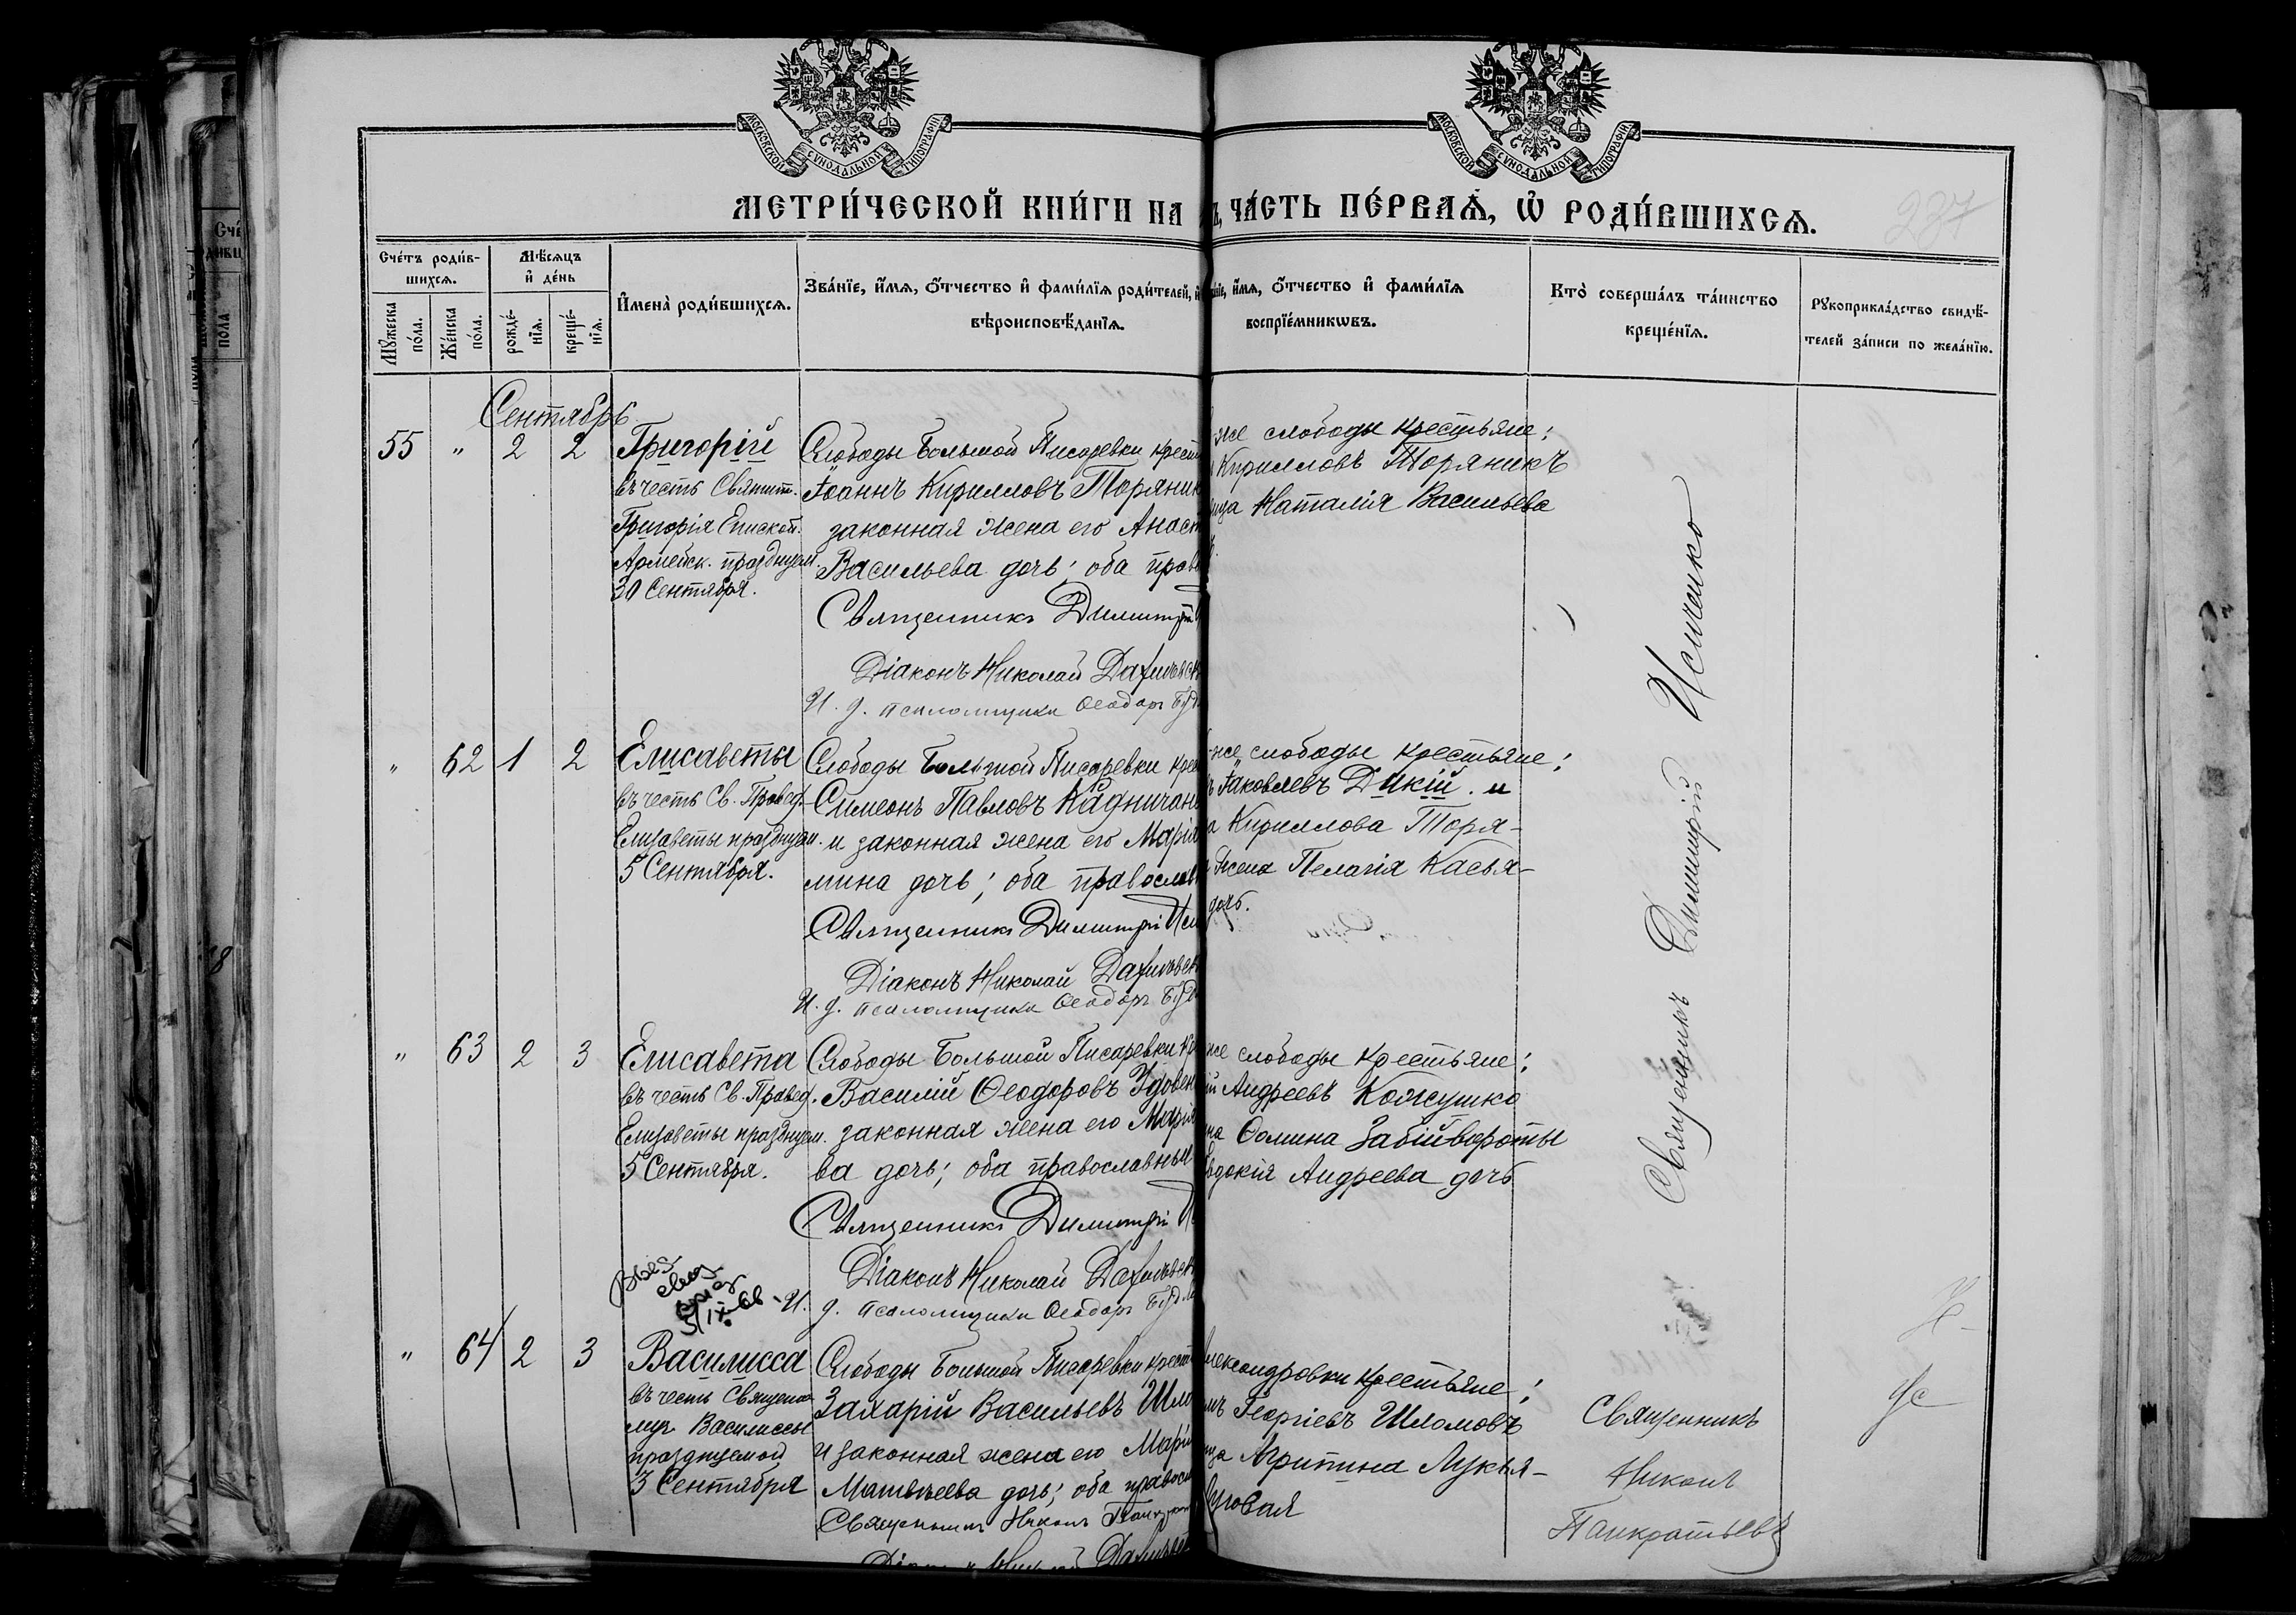 МОСКОВСКОЙ СѴНОДАЛЬНОЙ ТИПОГРАФІИ
МОСКОВСКОЙ СѴНОДАЛЬНОЙ ТИПОГРАФІИ
МЕТРИ́ЧЕСКОЙ КНИ́ГИ НА
ЧА́СТЬ ПЕ́РВАѦ, Ѽ РОДИ́ВШИХСѦ.
237
Сче́тъ роди́в-
шихсѧ.
Мѣ́сѧцъ
и҆ де́нь
Мꙋ́жеска
по́ла.
Же́нска
по́ла.
рожде́-
нїѧ.
креще́-
нїѧ.
И҆мена̀ роди́вшихсѧ.
Зва́нїе, и҆́мѧ, ѻ҆́тчество и҆ фами́лїѧ роди́телей, и҆
вѣроисповѣ́данїѧ.
и҆́мѧ, ѻ҆́тчество и҆ фами́лїѧ
воспрїе́мникѡвъ.
Кто̀ соверша́лъ та́инство
креще́нїѧ.
Рꙋкоприкла́дство свидѣ́-
телей за́писи по жела́нїю.
Сентябрь
55 " 2 2
Григорій
въ честь Святит.
Григорія Епископ.
Армейск. празднуем.
30 Сентября.
Слободы Большой Писаревки крест
Іоаннъ Кирилловъ Торяник
законная жена его Анаст
Васильева дочь; оба прав
Священникъ Димитрій
Діаконъ Николай
И. д. псаломщика Ѳеодоръ
же слободы крестьяне:
Кирилловъ Торяникъ
ица Наталія Васильева
" 62 1 2
Елисаветы
въ честь Св. Правед.
Елизаветы празднуем.
5 Сентября.
Слободы Большой Писаревки крес
Симеонъ Павловъ Кадничан
и законная жена его Марія
мина дочь; оба православ
Священникъ Димитрій Иси
Діаконъ Николай
И. д. псаломщика Ѳеодоръ
же слободы крестьяне:
Іаковлевъ Дикій и
а Кириллова Торя-
жена Пелагія Касья-
дочь.
" 63 2 3
Елисавета
въ честь Св. Правед.
Елизаветы празднуем.
5 Сентября.
Слободы Большой Писаревки кр
Василій Ѳеодоровъ Удовен
законная жена его Марія
ва дочь; оба православныи
Священникъ Димитрій
Діаконъ Николай
И. д. псаломщика Ѳеодоръ
же слободы крестьяне:
Андреевъ Кожушко
на Ѳомина Забійвороты
вдокія Андреева дочь
Священникъ Димитрій Исиченко
" 64 2 3
Василисса
въ честь Священно
муч. Василиссы
празднуемой
3 Сентября
Слободы Большой Писаревки крест
Захарій Васильевъ Шло
и законная жена его Марія
Матвѣева дочь; оба правосл
Священникъ Никонъ Панкрат
Діаконъ Николай
лександровки крестьяне:
мъ Георгіевъ Шломовъ
ца Агрипина Лукья-
уговая
Священникъ
Никонъ
Панкратьевъ